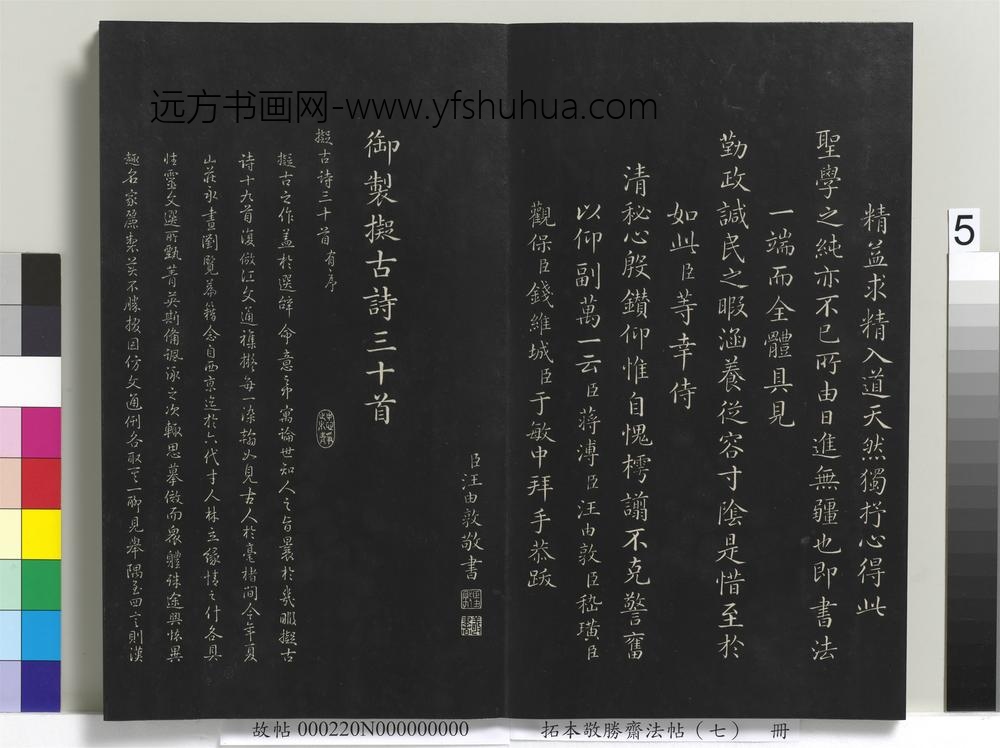 远方书画网-www.yfshuhua.com
精益求精入道天然獨抒心得此
聖學之純亦不已所由日進無疆也即書法
一端而全體具見
勤政諴民之暇涵養從容寸陰是惜至於
如此臣等幸侍
清秘心殷鑽仰惟自愧樗譾不克警奮
以仰副萬一云臣蔣溥臣汪由敦臣嵇璜臣
觀保臣錢維城臣于敏中拜手恭跋
臣汪由敦敬書
御製擬古詩三十首
擬古詩三十首有序
擬古之作蓋於選辭命意之中寓論世知人之旨曩於幾暇擬古
詩十九首復倣江文通雜擬每一染翰如見古人於毫楮間今年夏
山莊永晝瀏覽藝籍念自西京迄於六代才人林立緣情之什各具
性靈文選所甄菁英斯備諷泳之次輒思摹倣而衆體殊途興悰異
趣名家麗製美不勝掇因仿文通例各取其一聊見舉隅至四言則漢
5
故帖 000220N000000000
拓本敬勝齋法帖（七） 冊